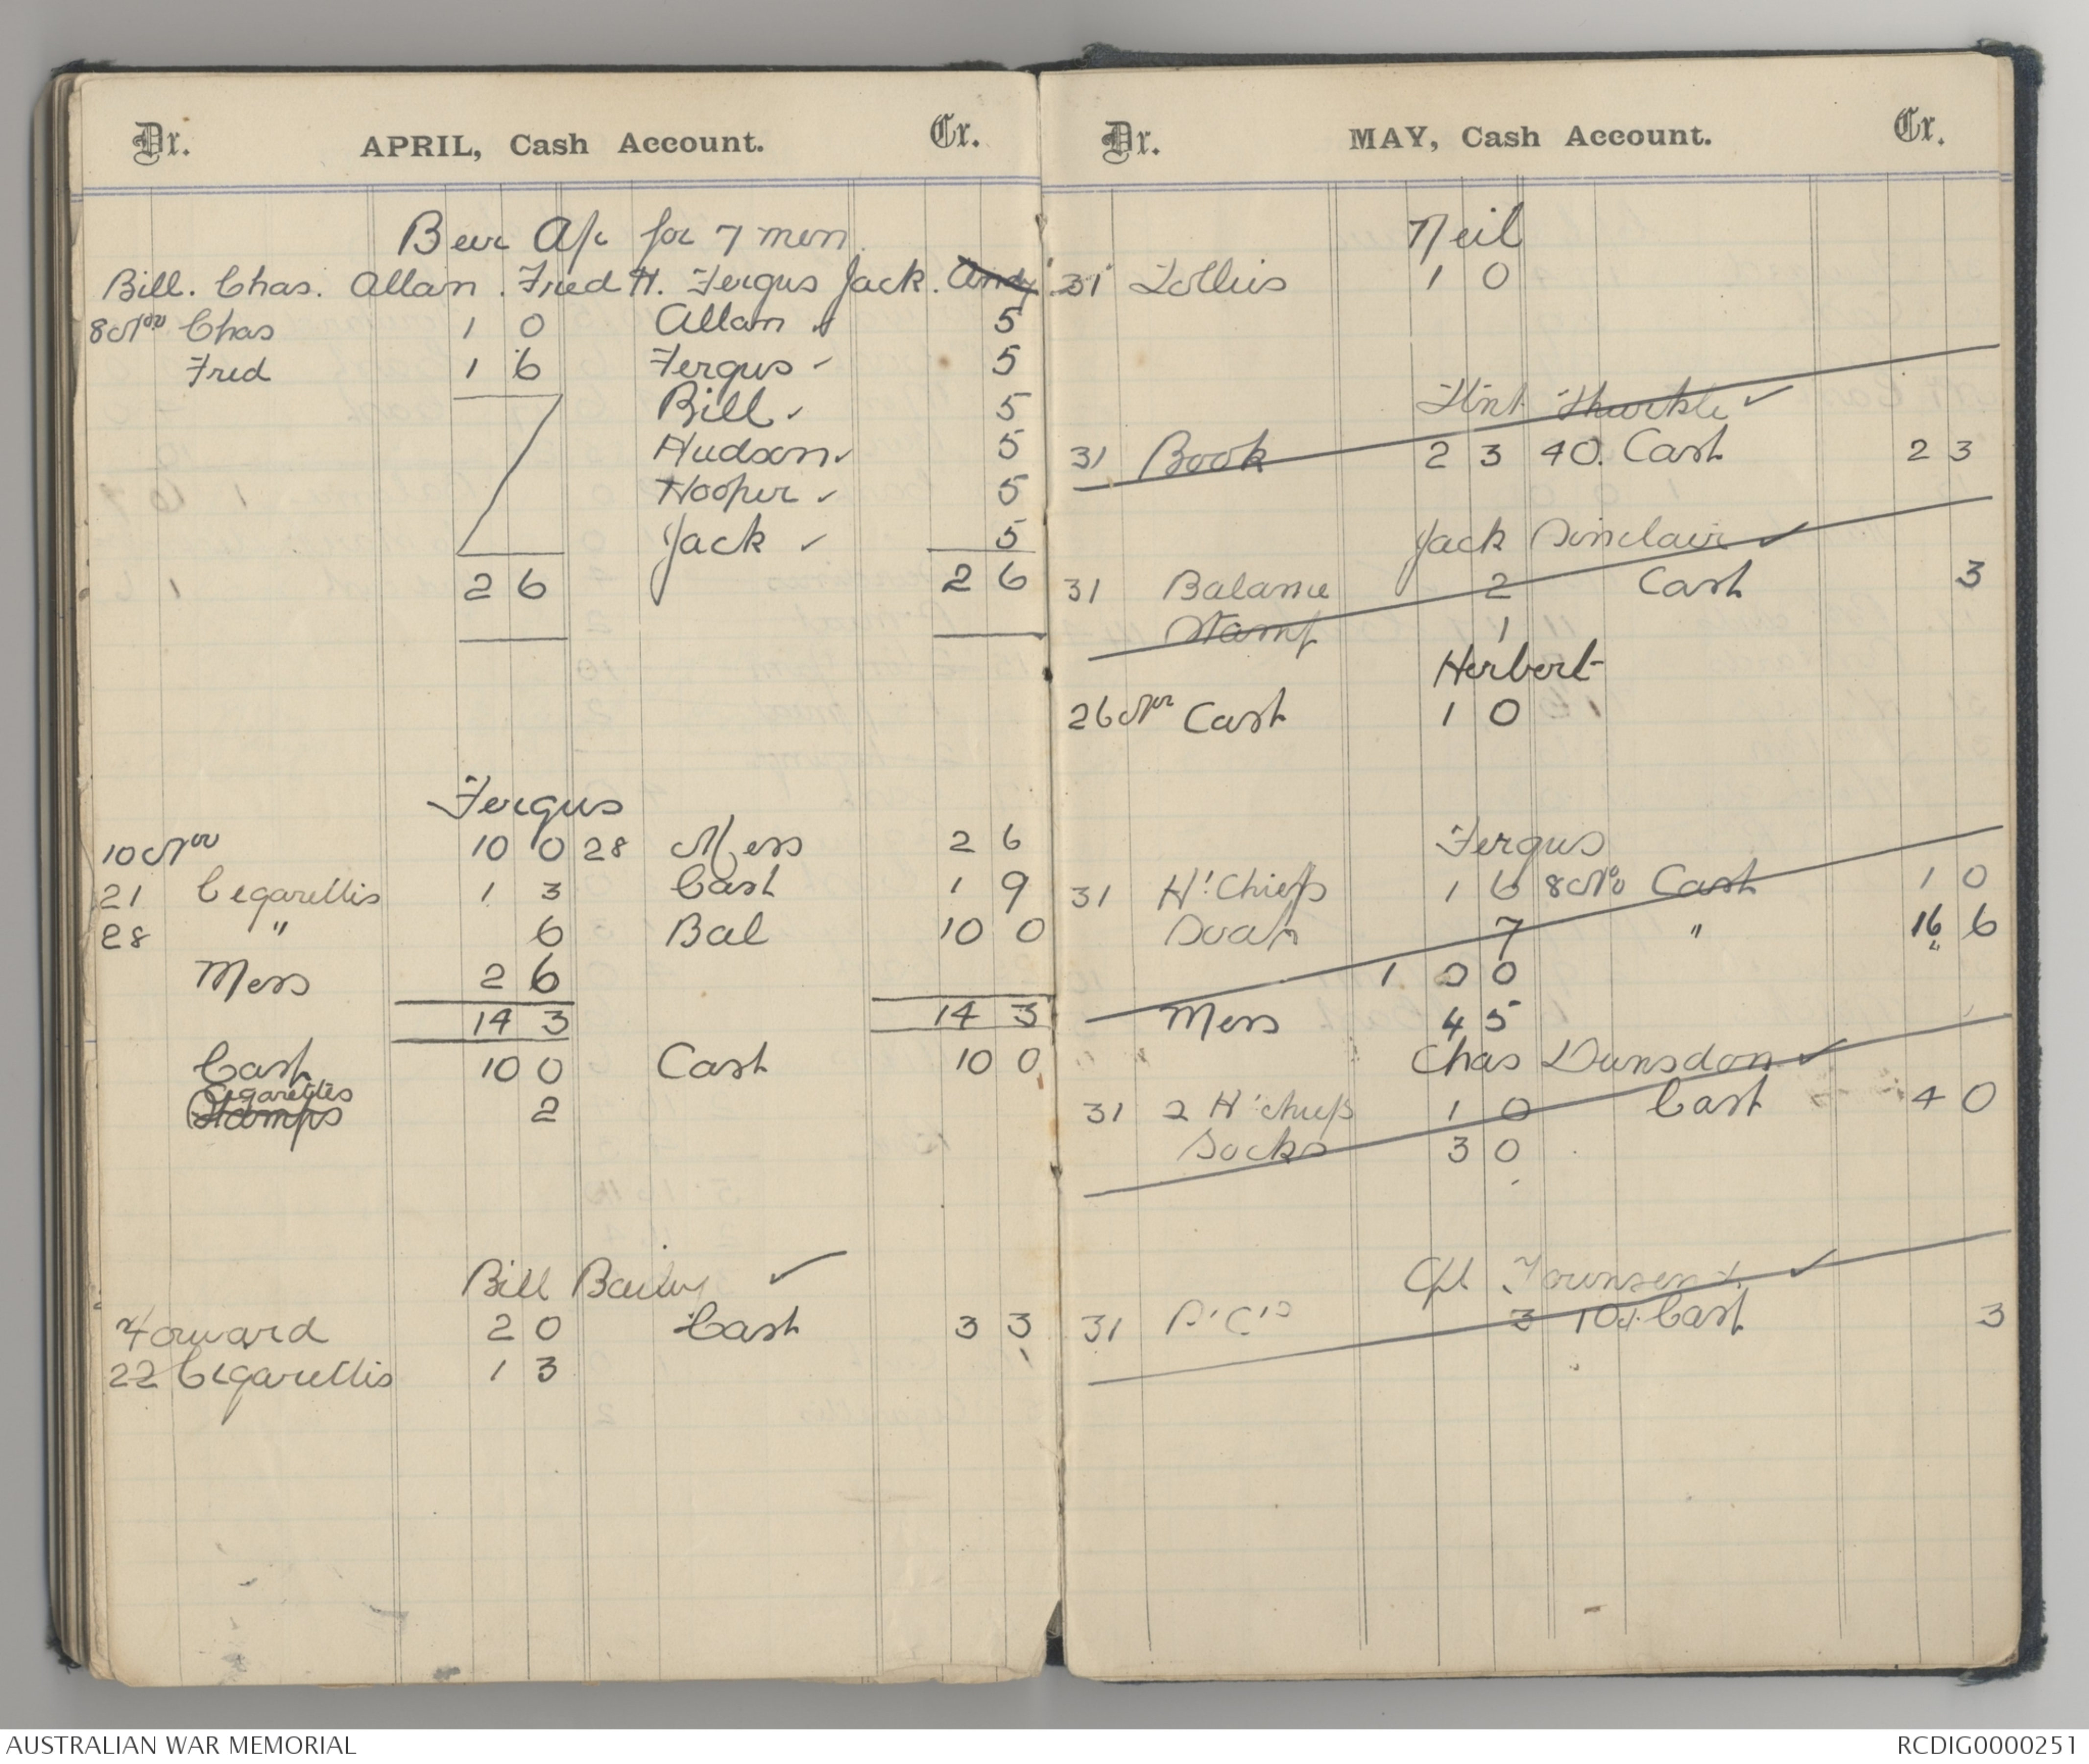 Dr. APRIL, Cash Account. Cr.
Beer A/c for 7 men.
Bill. Chas. Allan. Fred H. Fergus Jack. Andy
8 Nov Chas 1 0 Allan ✓ 5
Fred 1 6 Fergus ✓ 5
Bill ✓ 5
Hudson ✓ 5
Hooper ✓ 5
Jack ✓ 5
2 6 2 6
Fergus
10 Nov 10 0 28 Mess 2 6
21 Cigarettes 1 3 Cash 1 9
28 " 6 Bal 10 0
Mess 2 6
14 3 14 3
Cash 10 0 Cash 10 0
Cigarettes
Stamps 2
Bill Bailey ✓
Forward 2 0 Cash 3 3
22 Cigarettes 1 3
Dr. MAY, Cash Account. Cr.
Neil
31 Lollies 1 0
Flint Thurkle ✓
31 Book 2 3 40. Cash 2 3
Jack Sinclair ✓
31 Balance 2 Cash 3
Stamp 1
Herbert
26 Nov Cash 1 0
Fergus
31 H'Chiefs 1 6 8 Nov Cash 1 0
Soap 7 " 16 6
1 0 0
Mess 4 5
Chas Dunsdon ✓
31 2 H'chiefs 1 0 Cash 4 0
Socks 3 0
Cpl. Townsend ✓
31 P.C's 3 10d. Cash 3
AUSTRALIAN WAR MEMORIAL RCDIG0000251